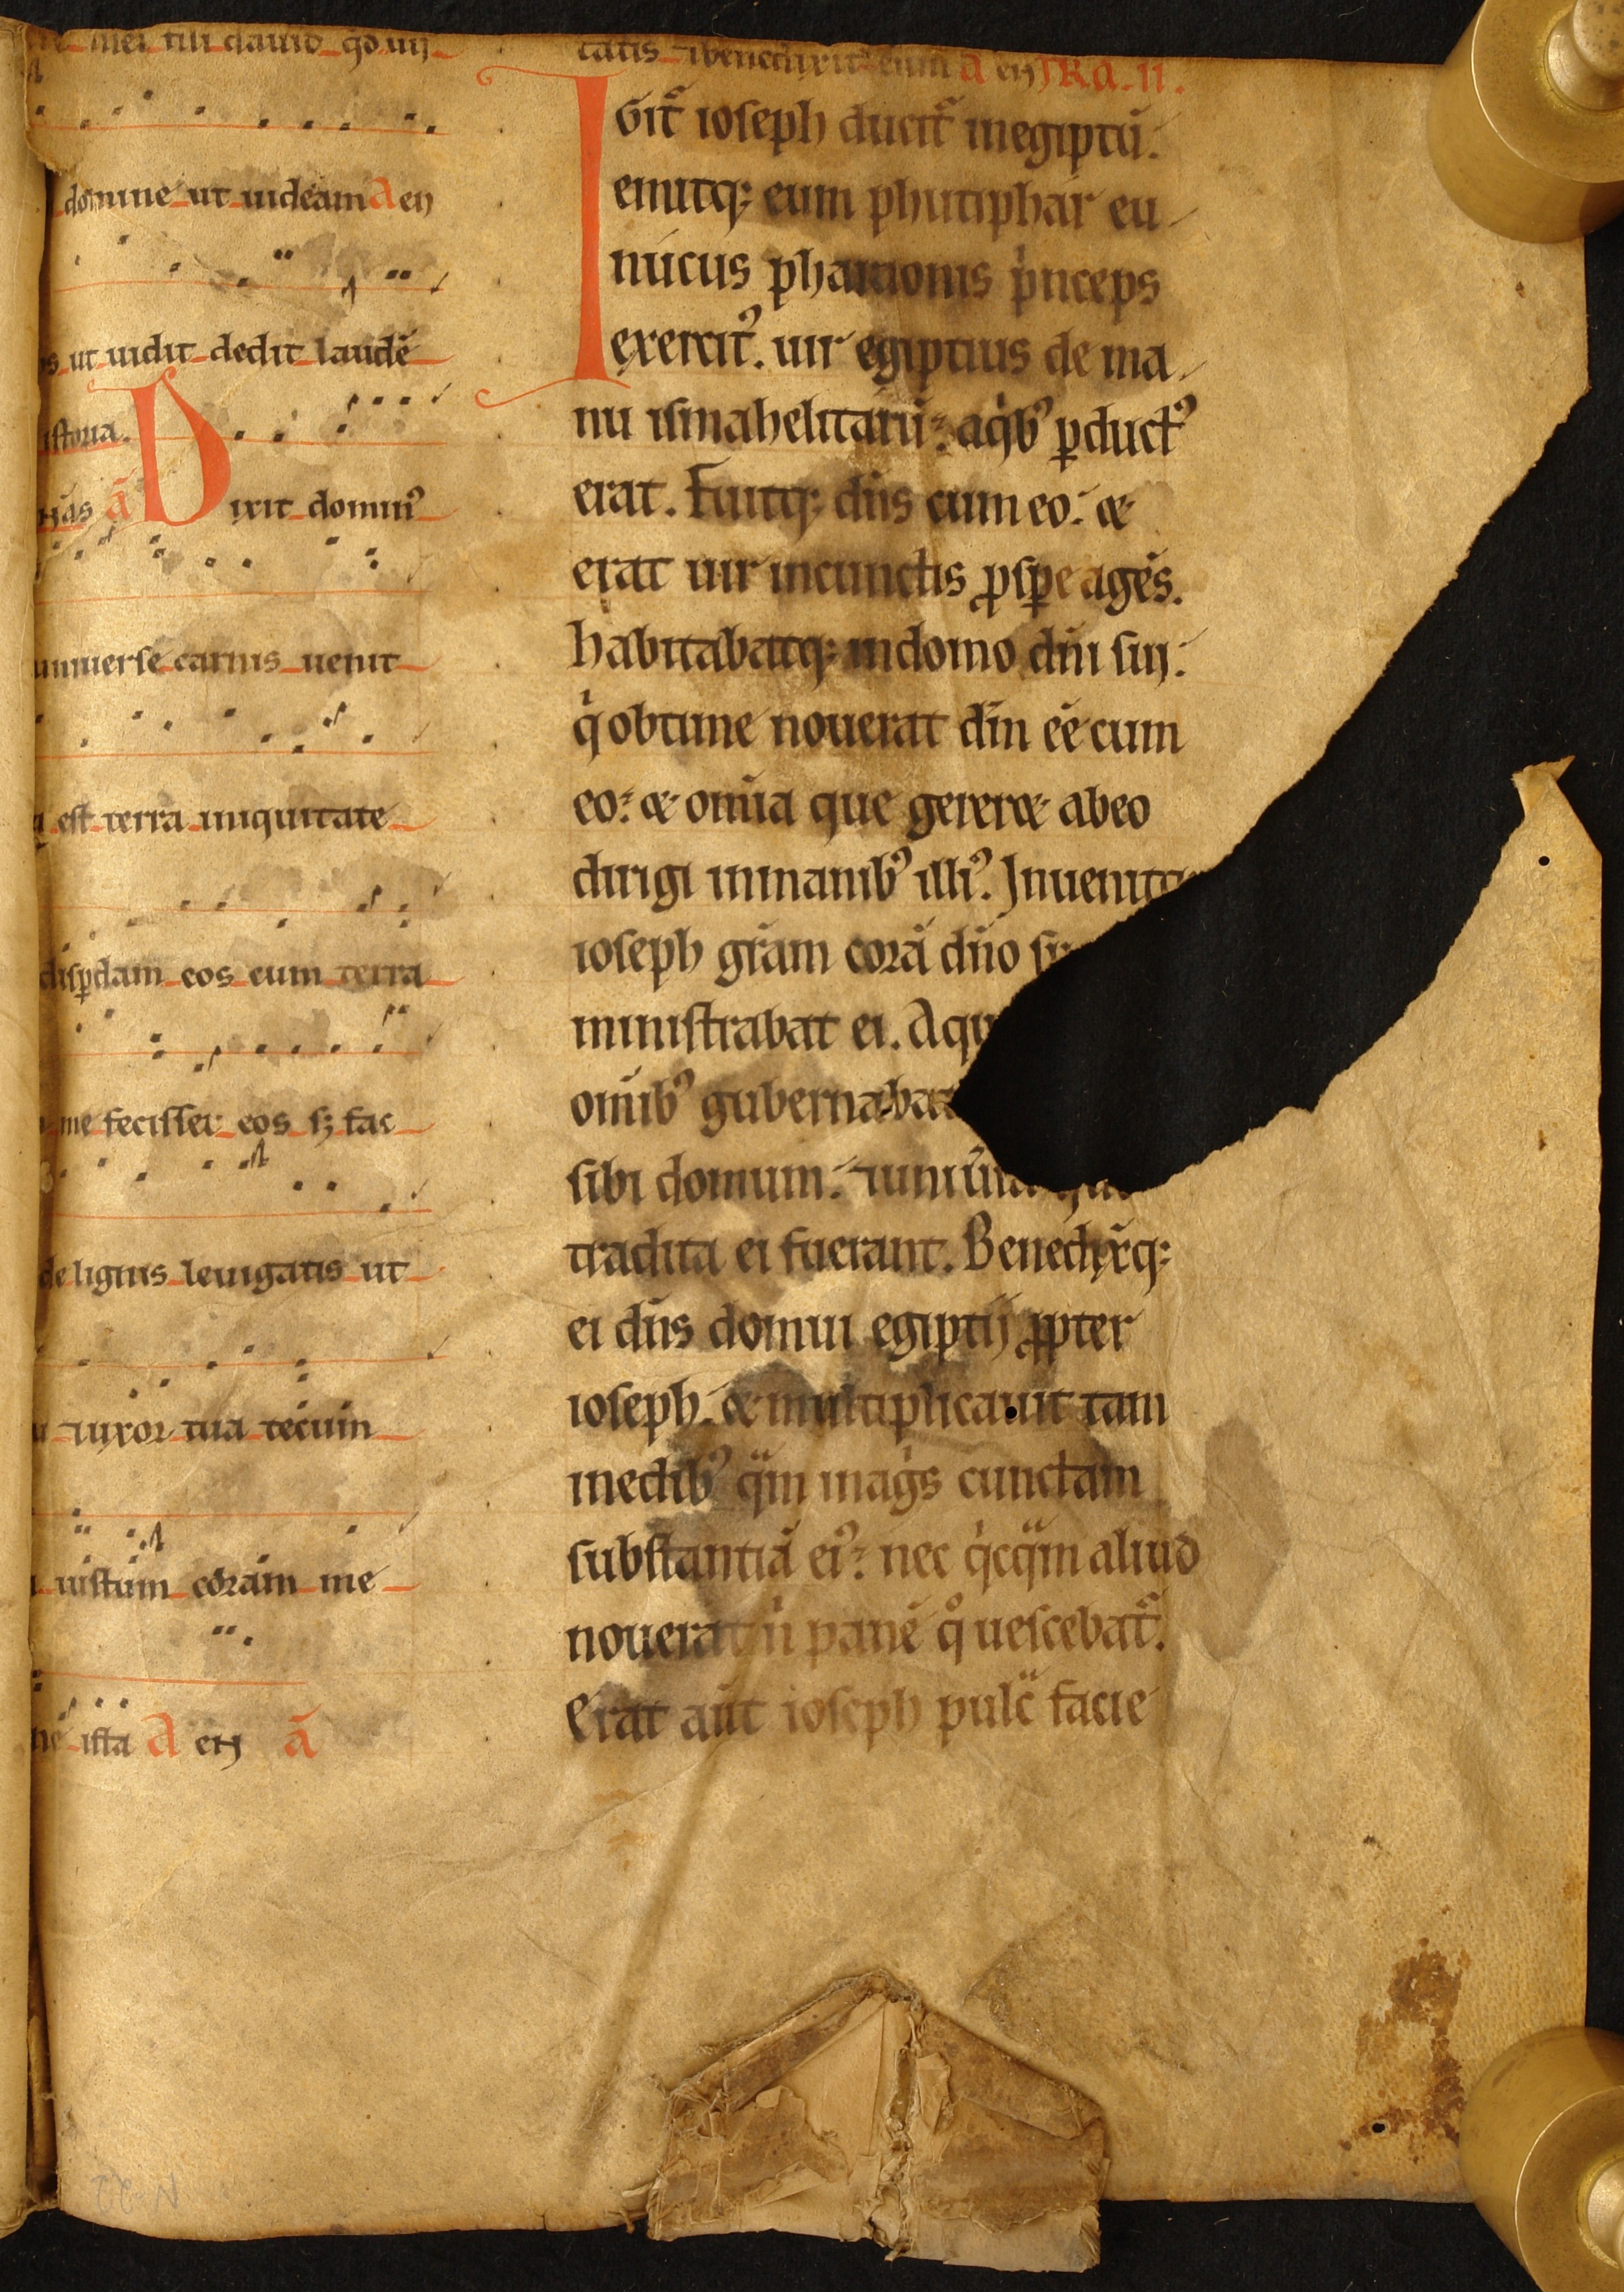 mei fili dauid qd uij
domine ut uideam A en
ut uidit dedit laudē
istoria.
ā Dixit domin᷒
uniuerse carnis uenit
est terra iniquitate
disꝑdam eos cum terra
me fecisse eos sꝫ fac
de lignis leuigatis ut
⁊uxor tua tecum
iustum coram me
ista A en ā
tatis ⁊benedixit eum A en FRA. II.
IGit᷑ ioseph ducit᷑ inegiptū.
emitqꝫ eum phutiphar eu
nucus pharaonis pͥnceps
exercit᷒. uir egiptius de ma
nu ismahelitarū: aqͥb᷒ ꝑduct᷒
erat. Fuitqꝫ dn̄s cum eo: &
erat uir incunctis ꝓsꝑe agēs.
habitabatqꝫ indomo dn̄i sui:
qͥ obtime nouerat dn̄m eē cum
eo: & om̄ia que gerer& abeo
dirigi inmanib᷒ illi᷒. Inuenitq
ioseph gr̄am corā dn̄o su
ministrabat ei. Aqu
om̄ib᷒ gubernabat
sibi domum. ⁊uniūsa que
tradita ei fuerant. Benedix̄qꝫ
ei dn̄s domui egiptij ꝓpter
ioseph. & multiplicauit tam
inedib᷒ qᷓm inagͥs cunctam
substantiā ei᷒: nec qͥcqᷓm aliud
nouerat nͥ panē qͦ uescebat᷑.
Erat aūt ioseph pulc̄ facie